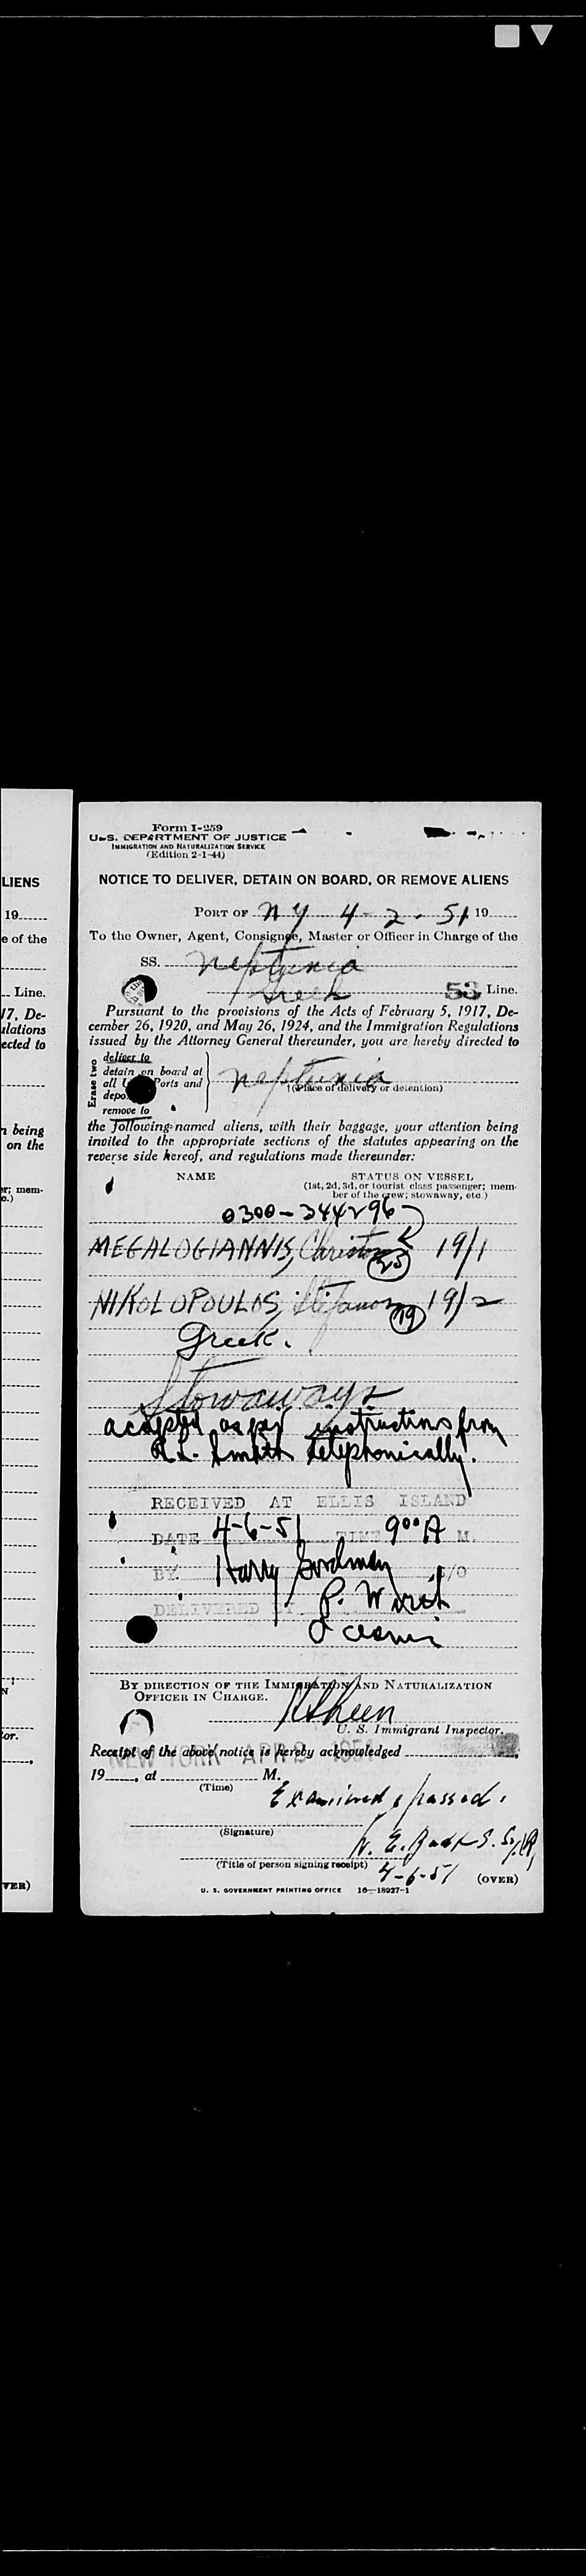 LIENS
19
e of the
Line.
17, De-
ulations
ected to
n being
on the
er; mem-
o.)
N
or.
VER)
Form I-259
U.S. DEPARTMENT OF JUSTICE
IMMIGRATION AND NATURALIZATION SERVICE
(Edition 2-1-44)
NOTICE TO DELIVER, DETAIN ON BOARD, OR REMOVE ALIENS
PORT OF NY 4-2-51 19
To the Owner, Agent, Consignee, Master or Officer in Charge of the
SS. Neptunia
Greek 53 Line.
Pursuant to the provisions of the Acts of February 5, 1917, De-
cember 26, 1920, and May 26, 1924, and the Immigration Regulations
issued by the Attorney General thereunder, you are hereby directed to
Erase two
deliver to
detain on board at
all Ports and
depo
remove to
Neptunia
†(Place of delivery or detention)
the following-named aliens, with their baggage, your attention being
invited to the appropriate sections of the statutes appearing on the
reverse side hereof, and regulations made thereunder:
NAME STATUS ON VESSEL
(1st, 2d, 3d, or tourist class passenger; mem-
ber of the crew; stowaway, etc.)
0300-344296
MEGALOGIANNIS, Christos 25 19/1
NIKOLOPOULOS, Stefanos 19 19/2
Greek.
Stowaways
accepted as per instructions from
R.L. Smith telephonically.
RECEIVED AT ELLIS ISLAND
DATE 4-6-51 TIME 900 A M.
BY Harry Goodman S/O
DELIVERED BY P. Wirth
BY DIRECTION OF THE IMMIGRATION AND NATURALIZATION
OFFICER IN CHARGE.
U. S. Immigrant Inspector.
Receipt of the above notice is hereby acknowledged
NEW YORK APR 1951
19, at M.
(Time)
Examined & passed.
(Signature)
(Title of person signing receipt)
4-6-51
(OVER)
U. S. GOVERNMENT PRINTING OFFICE 16—18927-1